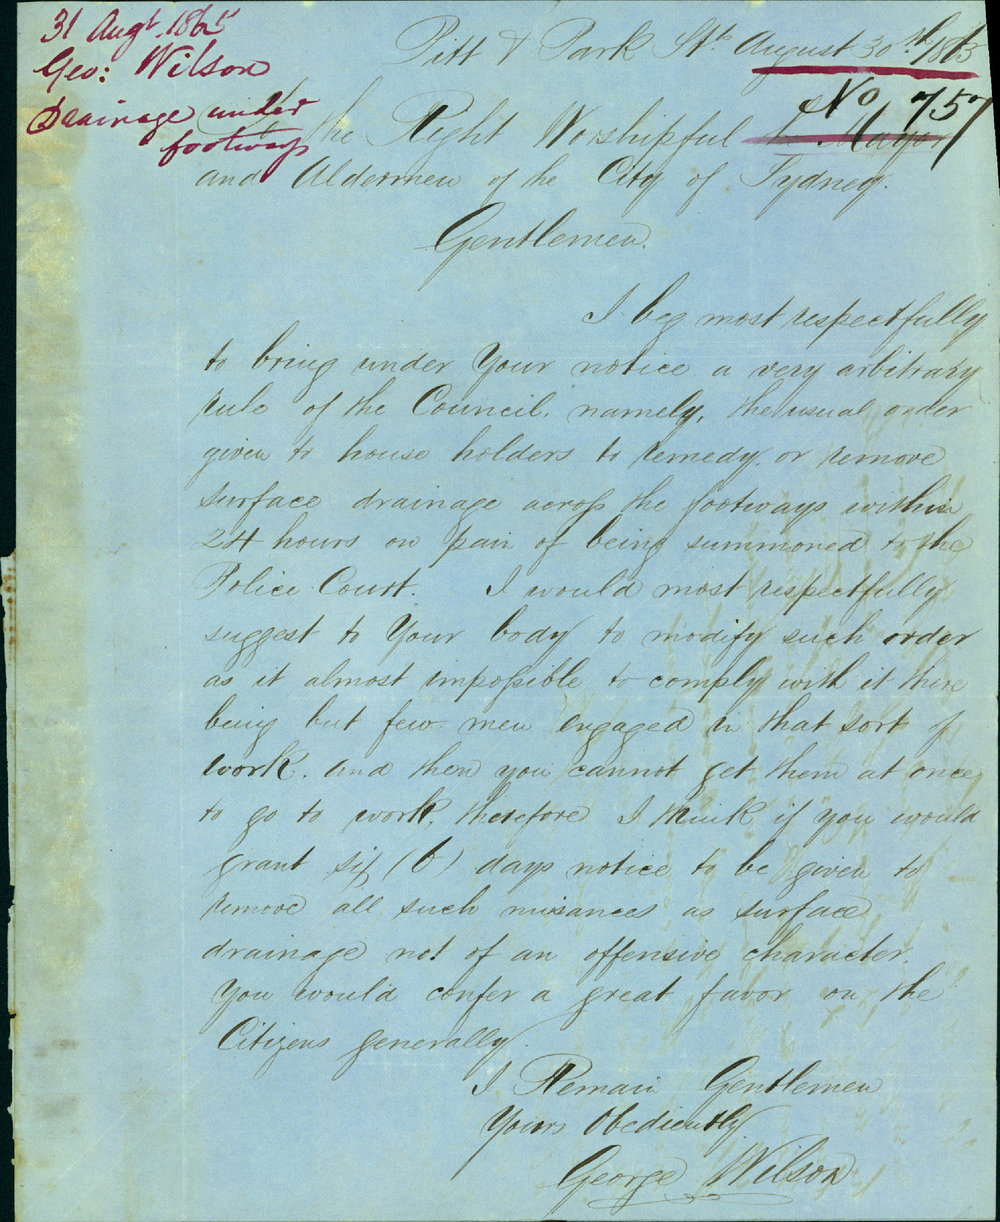 31 Augt. 1865
Geo: Wilson
Drainage under
footways
Pitt & Park Sts August 30th 1865
No 757
the Right Worshipful the Mayor
and Aldermen of the City of Sydney.
Gentlemen.
I beg most respectfully
to bring under Your notice a very arbitrary
rule of the Council, namely, the usual order
given to house holders to remedy or remove
surface drainage across the footways within
24 hours on pain of being summoned to the
Police Court. I would most respectfully
suggest to Your body to modify such order
as it almost impossible to comply with it there
being but few men engaged in that sort of
work. and then you cannot get them at once
to go to work, therefore I think if you would
grant six (6) days notice to be given to
remove all such nuisances as surface
drainage not of an offensive character.
You would confer a great favor on the
Citizens generally.
I Remain Gentlemen
Yours Obediently
George Wilson